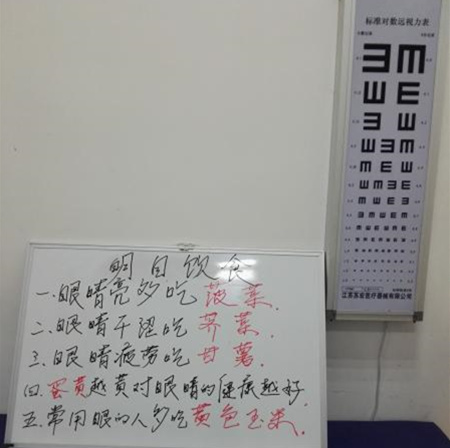 标准对数远视力表
明目饮食
一.眼睛亮多吃菠菜.
二.眼睛干涩吃荠菜.
三.眼睛疲劳吃甘薯.
四.蛋黄越黄对眼睛的健康越好.
五.常用眼的人多吃黄色玉米.